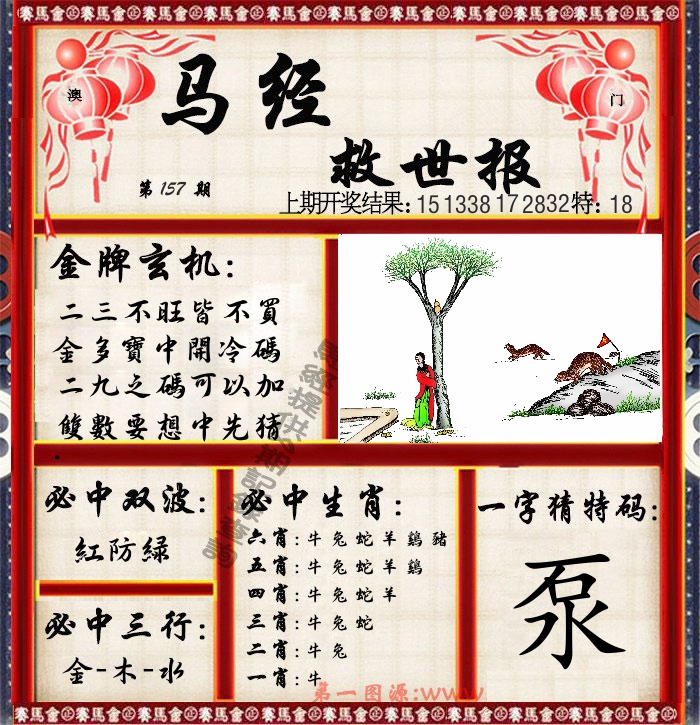 賽馬會㊣賽馬會㊣賽馬會㊣賽馬會㊣賽馬會㊣賽馬會㊣賽馬會㊣賽馬會㊣賽馬會
澳 门
马经
救世报
第157期
上期开奖结果:15 13 38 17 28 32 特:18
金牌玄机:
二三不旺皆不買
金多寶中開冷碼
二九之碼可以加
雙數要想中先猜
必中双波:
紅防綠
必中三行:
金-木-水
必中生肖:
六肖:牛兔蛇羊鷄豬
五肖:牛兔蛇羊鷄
四肖:牛兔蛇羊
三肖:牛兔蛇
二肖:牛兔
一肖:牛
一字猜特码:
泵
第一图源:www